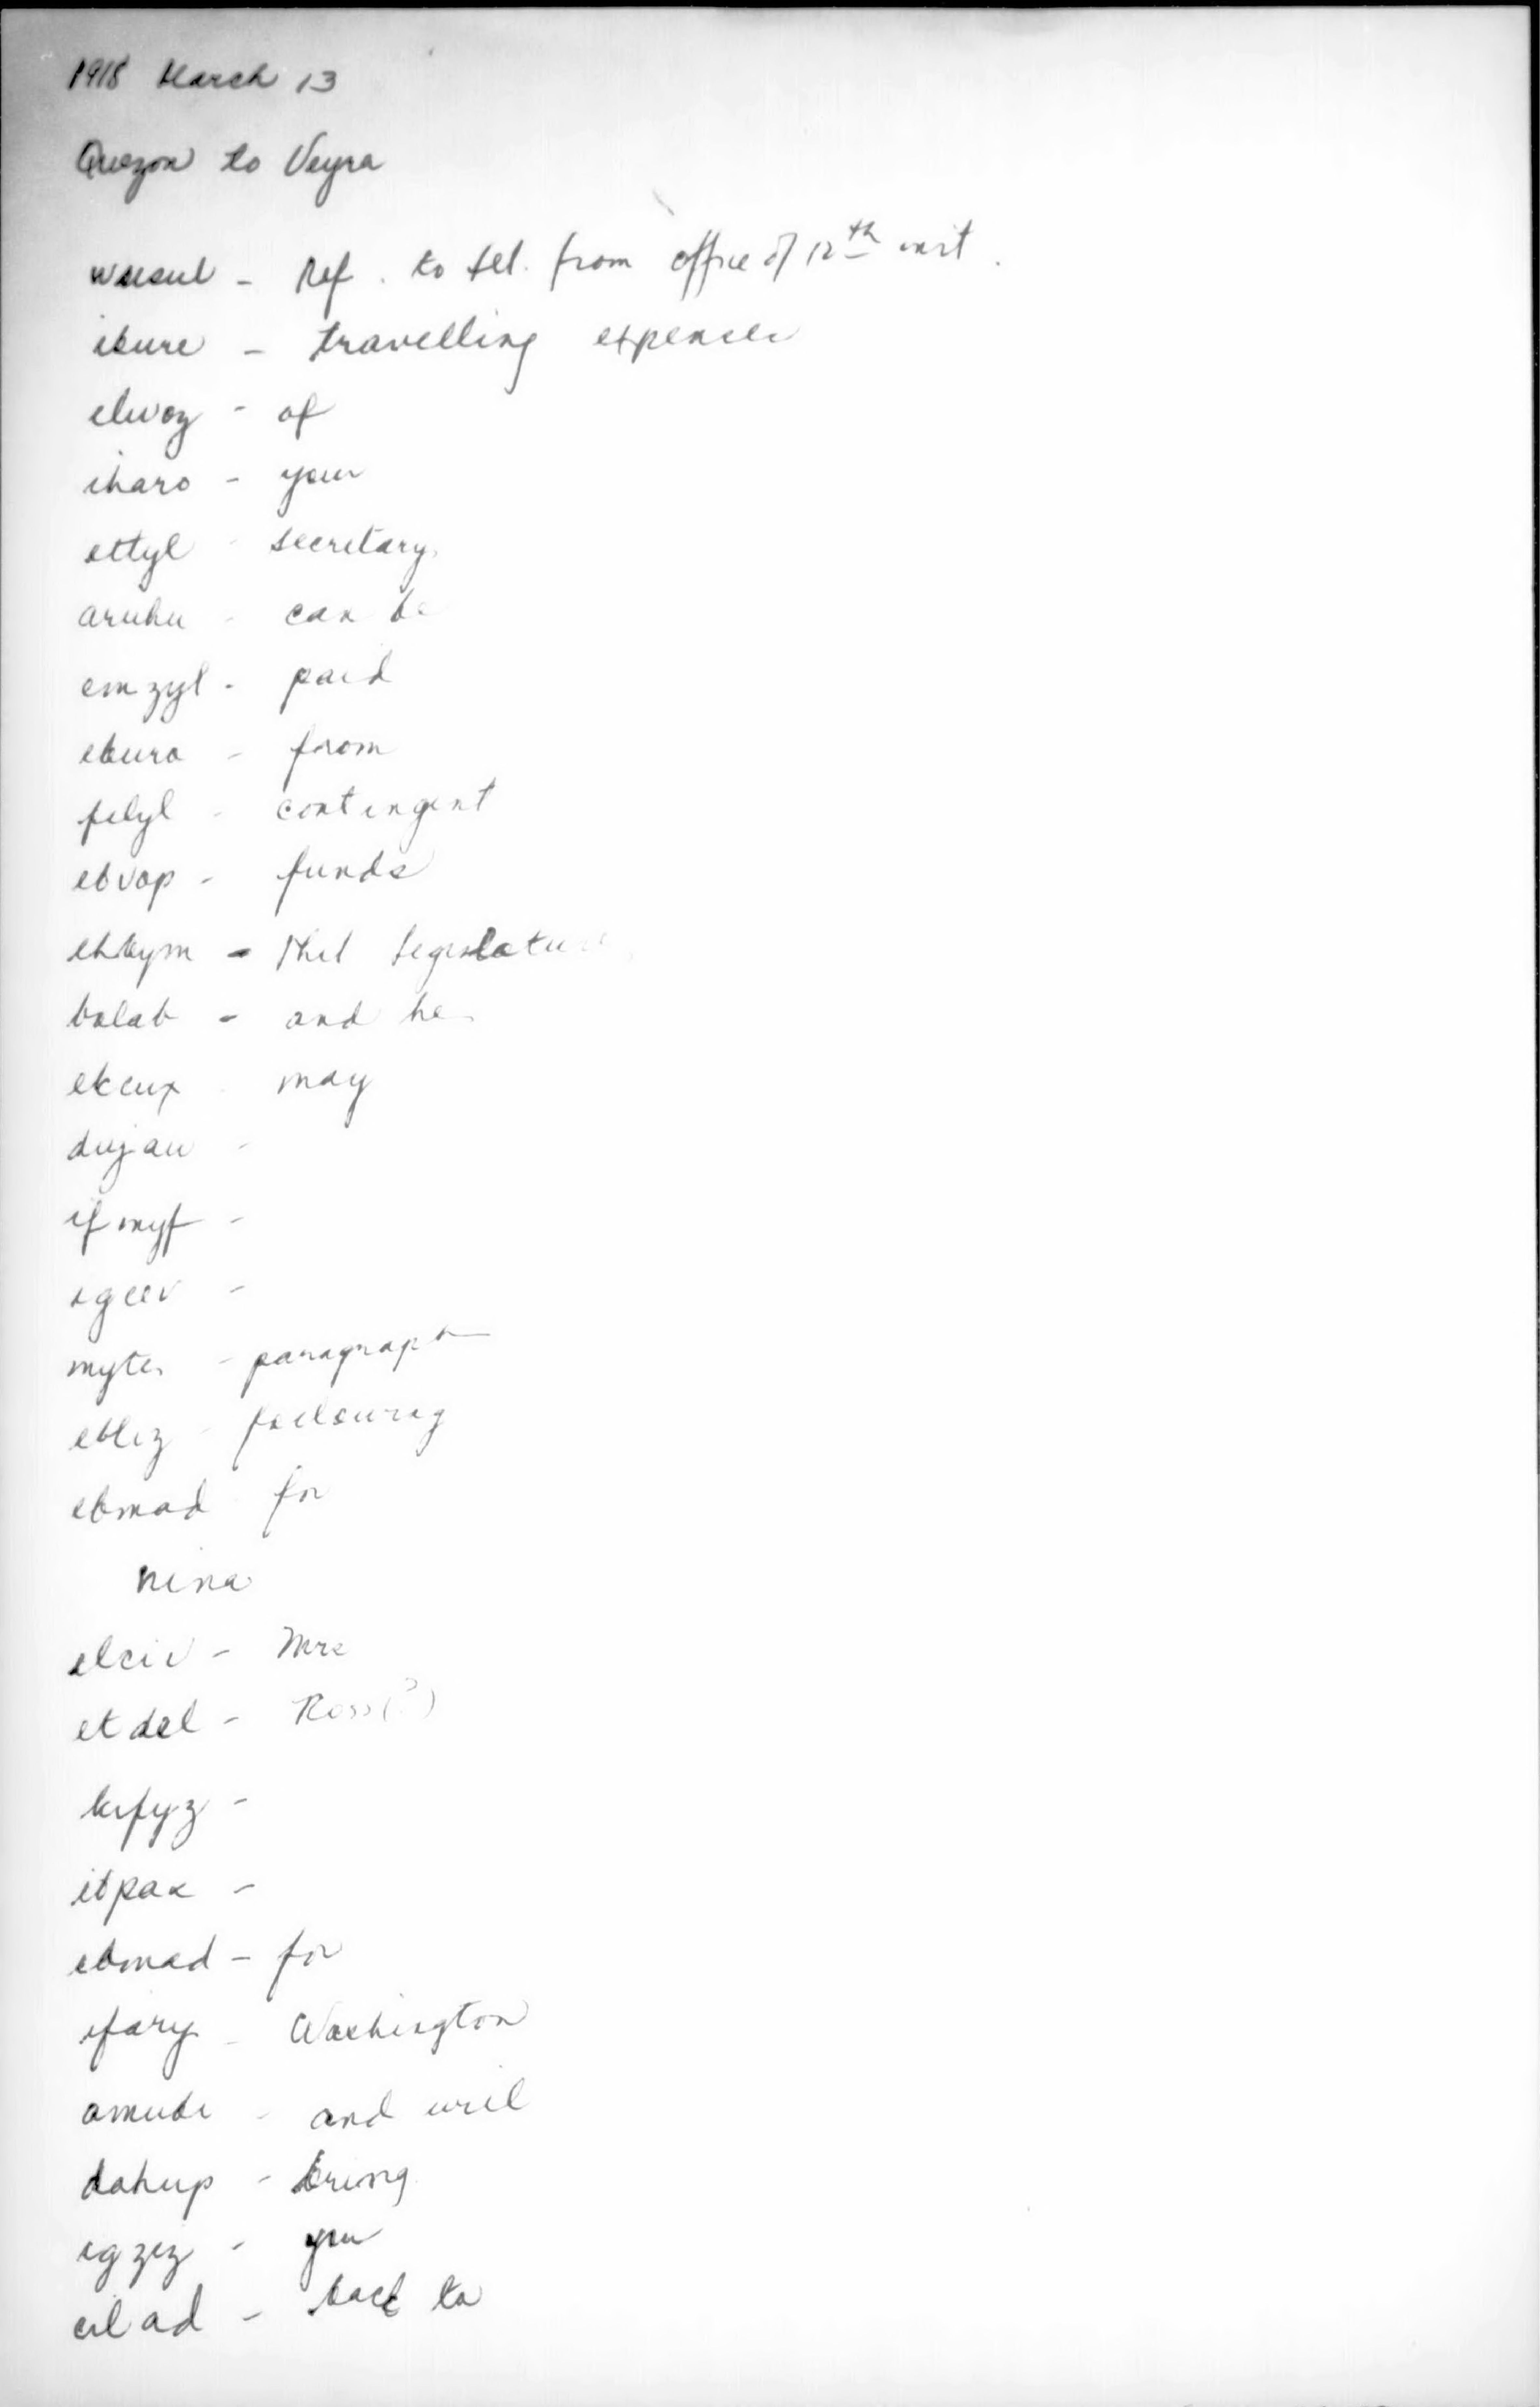 1918 March 13
Quezon to Veyra
wuesul - Ref. to tel. from office of 12th inst.
ibure - travelling expenses
elwoz - of
iharo - your
ettyl - secretary
aruhu - can be
emzyl - paid
eburo - from
filyl - contingent
ebvop - funds
ehkym - Phil Legislature
balab - and he
ekcux - may
dujaw -
ifmyf -
-
myte - paragraph
ebliz - following
ebmad for
nina
elciv - Mrs
etdel - Ross(?)
kifyz -
itpax -
ebmad - for
ifary - Washington
amubi - and will
dahup - bring
egziz - you
cilad - back to